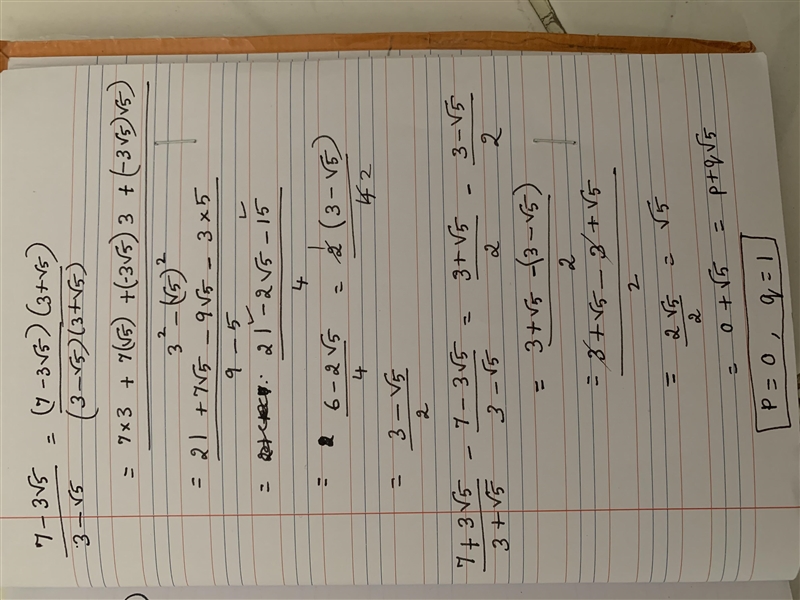 (7 - 3√5)/(3 - √5) = (7 - 3√5)(3+√5)/(3-√5)(3+√5)
= 7×3 + 7(√5) + (-3√5)3 + (-3√5)√5 / 3² - (√5)²
= 21 + 7√5 - 9√5 - 3×5 / 9 - 5
= 21 - 2√5 - 15 / 4
= 6 - 2√5 / 4 = 2(3 - √5) / 4 2
= 3 - √5 / 2
7 + 3√5 / 3 + √5 - 7 - 3√5 / 3 - √5 = 3 + √5 / 2 - 3 - √5 / 2
= 3 + √5 - (3 - √5) / 2
= 3 + √5 - 3 + √5 / 2
= 2√5 / 2 = √5
= 0 + √5 = p + q√5
P = 0, q = 1